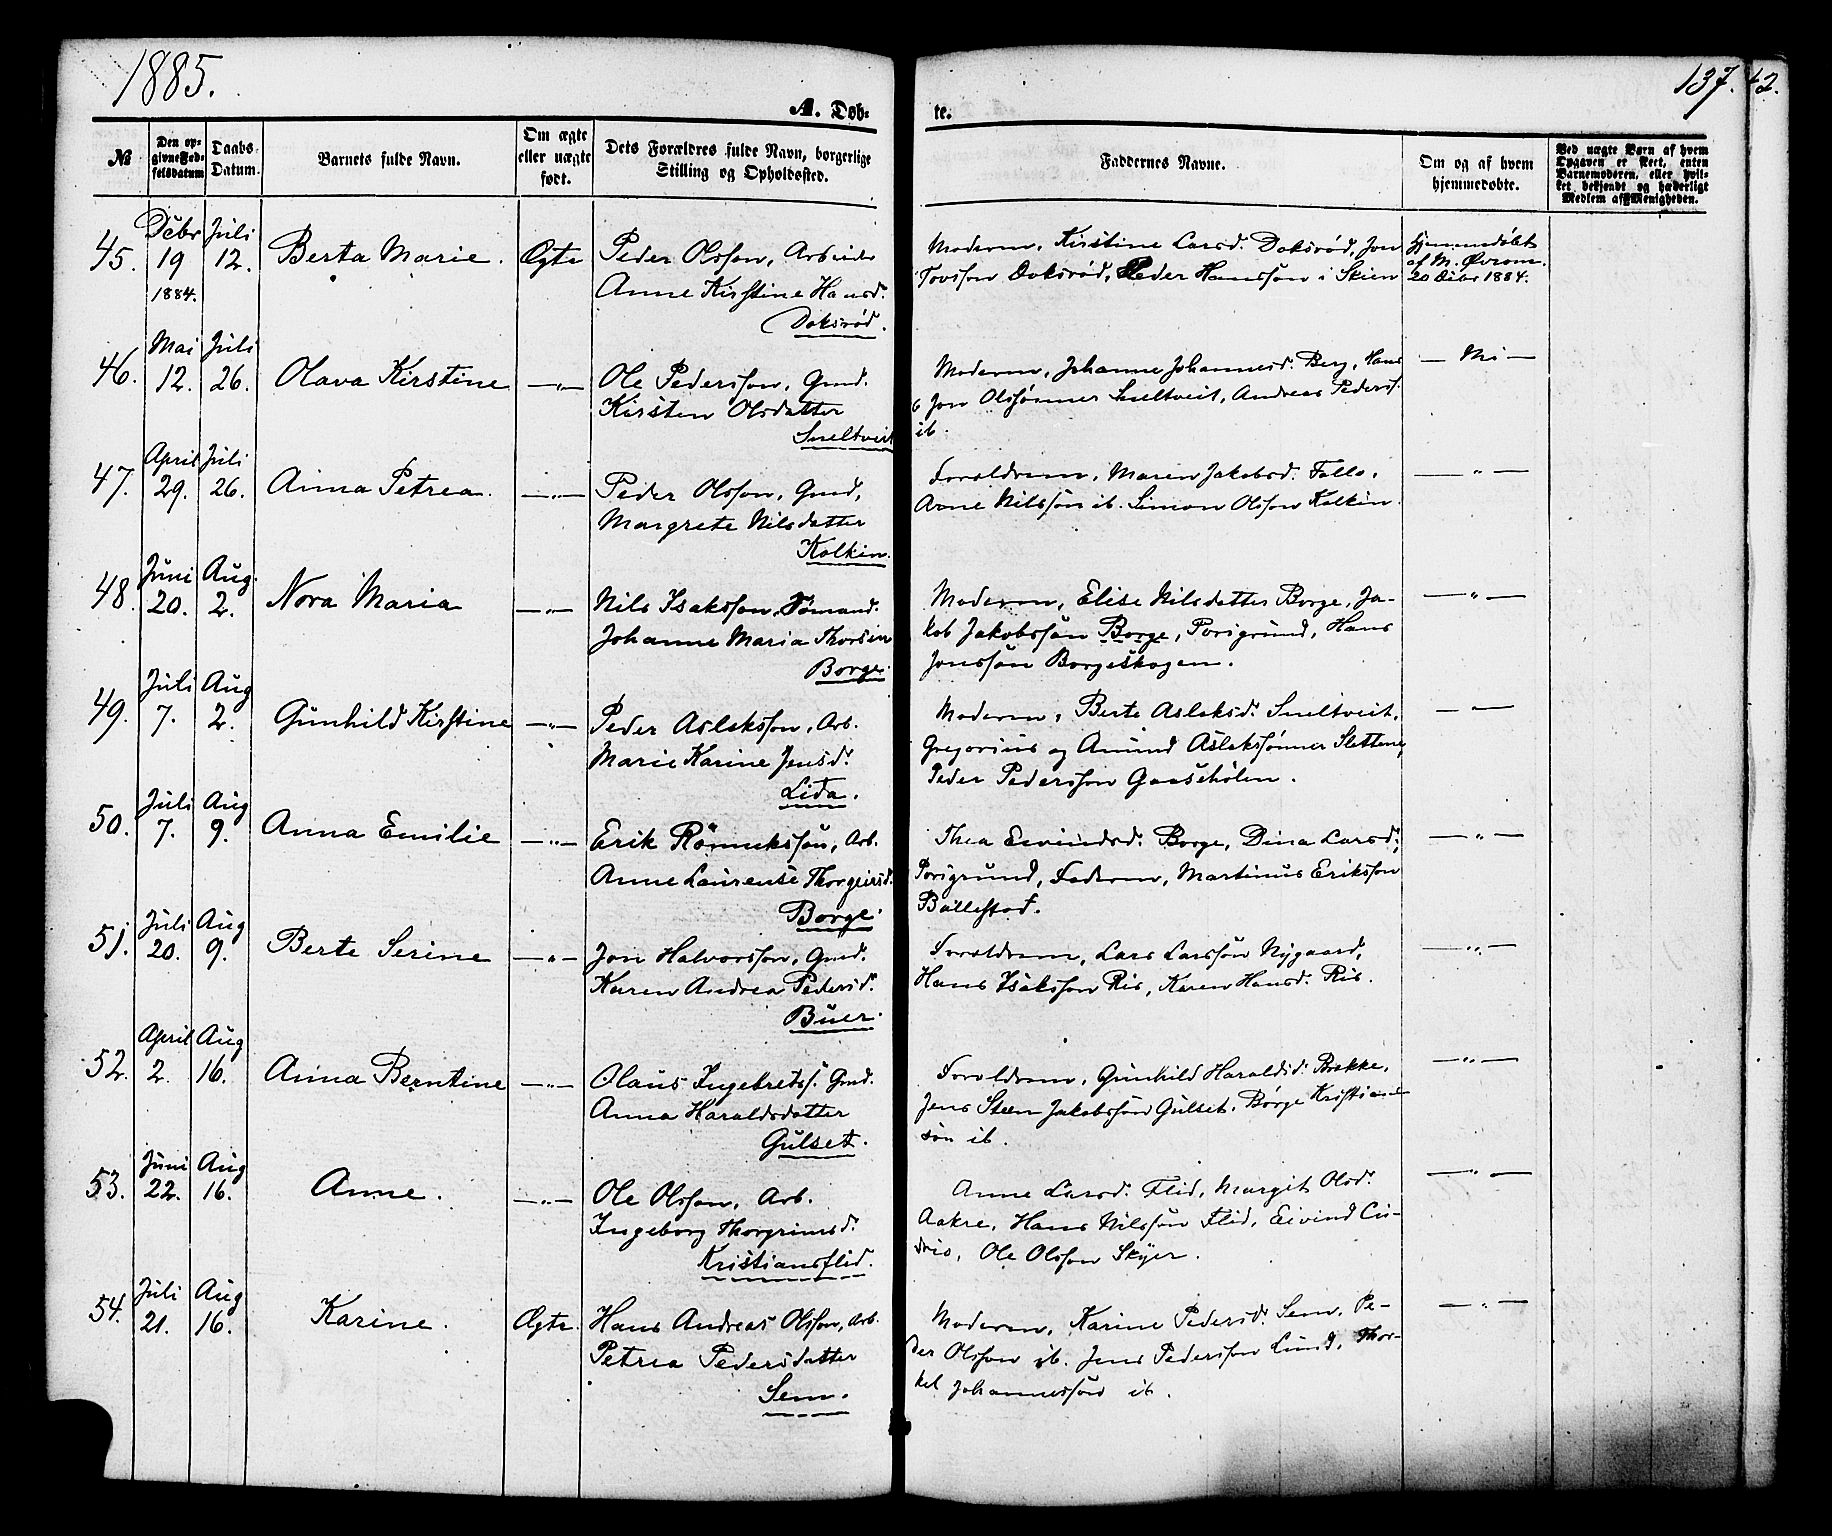 1885.
137.
A. Døb-
te.
№
Den op-
givne Fød-
selsdatum
Daabs-
Datum.
Barnets fulde Navn.
Om ægte
eller uægte
født.
Dets Forældres fulde Navn, borgerlige
Stilling og Opholdssted.
Faddernes Navne.
Om og af hvem
hjemmedøbte.
Ved uægte Børn af hvem
Opgaven er skeet, enten
Barnemoderen, eller hvil-
ket bekjendt og hæderligt
Medlem af Menigheden.
45.
Dcbr
19
1884.
Juli
12.
Berta Marie.
Ægte
Peder Olsson, Arbeider
Anne Kirstine Hansd.
Doksrød.
Moderen, Kirstine Larsd. Doksrød, Jon
Tovsson Doksrød, Peder Hansson i Skien
Hjemmedøbt
af M. Øvrom.
20 Debr 1884.
46.
Mai
12.
Juli
26.
Olava Kirstine
—„—
Ole Pedersson, Gmd.
Kirsten Olsdatter
Sneltveit
Moderen, Johanne Johannesd. Berg, Hans
o Jon Olssønner Sneltveit, Andreas Peders.
ib.
— Nei —
47.
April
29.
Juli
26.
Anna Petrea.
—„—
Peder Olsson, Gmd,
Margrete Nilsdatter
Kolkin.
Forældrene, Maren Jakobsd. Follo,
Arne Nilsson ib. Simon Olsson Kolkin.
— „ —
48.
Juni
20.
Aug.
2.
Nora Maria
—„—
Nils Isaksson, Sømand.
Johanne Maria Thorsen
Borge.
Moderen, Elise Nilsdatter Borge, Ja-
kob Jakobsson Borge, Porsgrund, Hans
Jonsson Borgeskogen.
— „ —
49.
Juli
7.
Aug
2.
Gunhild Kirstine
—„—
Peder Aslaksson, Arb.
Marie Karine Jensd.
Lida.
Moderen, Berte Aslaksd. Sneltveit,
Gregorius og Amund Aslakssønner Slettene,
Peder Pedersson Gaasehølen.
— „ —
50.
Juli
7.
Aug
9.
Anna Emilie
—„—
Erik Rønnuksson, Arb.
Anne Laurense Thorgeirsd.
Borge.
Thea Eivindsd. Borge, Dina Larsd.,
Porsgrund, Faderen, Martinus Eriksson
Ballestad.
— „ —
51.
Juli
20.
Aug
9.
Berte Serine
—„—
Jon Halvorsson, Gmd.
Karen Andrea Pedersd.
Buer.
Forældrene, Lars Larsson Nygaard,
Hans Isaksson Ris, Karen Hansd. Ris.
— „ —
52.
April
2.
Aug
16.
Anna Berntine
—„—
Olaus Ingebretss. Gmd.
Anna Haraldsdatter
Gulset.
Forældrene, Gunhild Haraldsd. Bakke,
Jens Steen Jakobsson Gulset, Børge Kristian-
son ib.
— „ —
53.
Juni
22.
Aug
16.
Anne.
—„—
Ole Olsson, Arb.
Ingeborg Thorgrimsd.
Kristiansflid.
Anne Larsd. Flid, Margit Olsd.
Aakre, Hans Nilsson Flid, Eivind
Ole Olsson Skyer.
— „ —
54.
Juli
21.
Aug
16.
Karine.
Ægte.
Hans Andreas Olsson, Arb.
Petrea Pedersdatter
Sem.
Moderen, Karine Pedersd. Sem, Pe-
der Olsson ib. Jens Pedersson Lund, Thor-
kel Johannesson ib.
— „ —